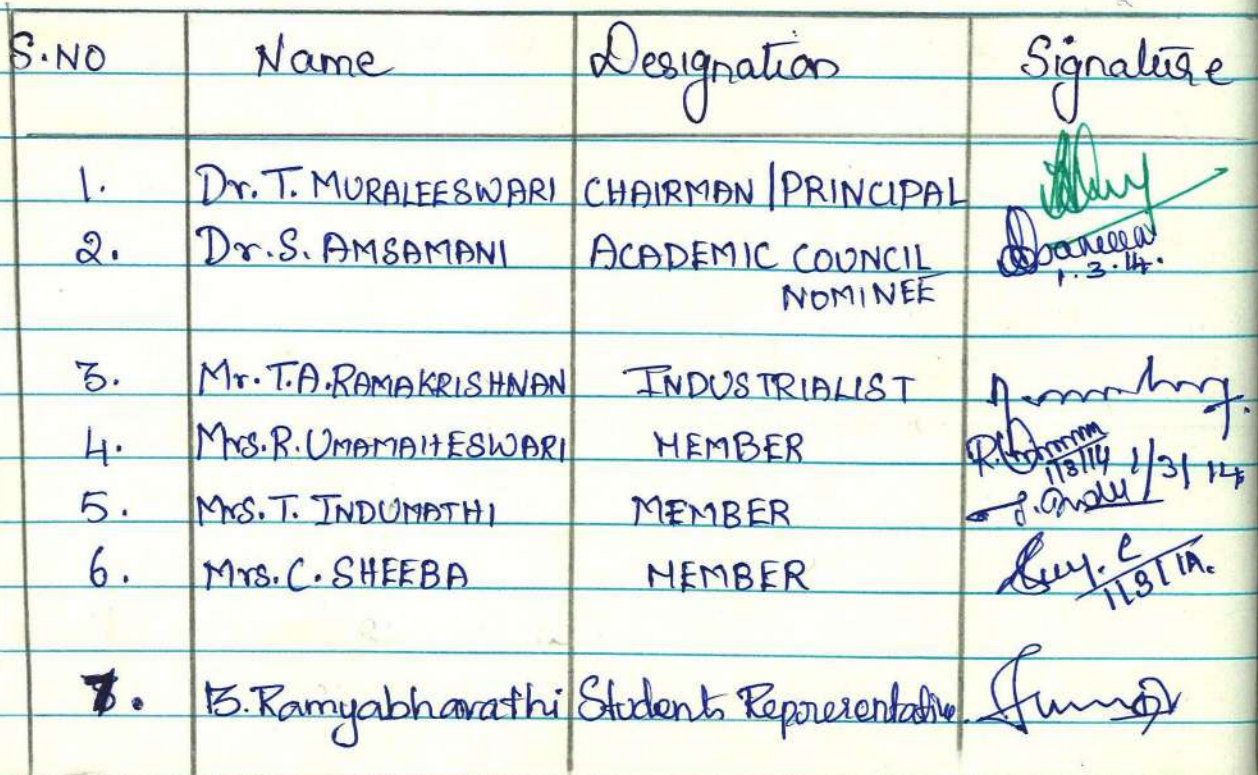 S.NO Name Designation Signature
1. Dr. T. MURALEESWARI CHAIRMAN / PRINCIPAL
2. Dr. S. AMSAMANI ACADEMIC COUNCIL
1.3.14.
NOMINEE
3. Mr. T.A. RAMAKRISHNAN INDUSTRIALIST
4. Mrs. R. UMAMAHESWARI MEMBER
1/3/14 1/3/14
5. Mrs. T. INDUMATHI MEMBER
6. Mrs. C. SHEEBA MEMBER
1/3/14.
7. B. Ramyabharathi Student Representative